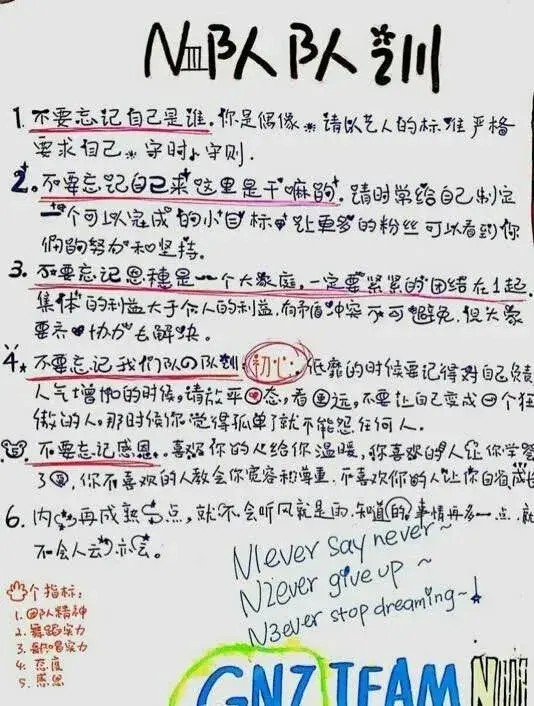 NIII队队训
1. 不要忘记自己是谁。你是偶像。请以艺人的标准严格
要求自己。守时、守则.
2。不要忘记自己来这里是干嘛的。请时常给自己制定
一个可以完成的小目标。让更多的粉丝可以看到你
们的努力和坚持。
3. 不要忘记恩穗是一个大家庭,一定要紧紧的团结在1起.
集体的利益大于个人的利益.有矛盾冲突不可避免.但大家
要齐心协力去解决。
4. 不要忘记我们队の队训:初心.低靡的时候要记得对自己负责
人气增加的时候,请放平心态,看心远,不要让自己变成一个狂
傲的人。那时候你觉得孤单了就不能怨任何人.
不要忘记感恩。喜欢你的人给你温暖,你喜欢的人让你学会
了,你不喜欢的人教会你宽容和尊重.不喜欢你的人让你自省成长
6. 内心再成熟一点,就不会听风就是雨.知道的事情再多一点.就
不会人云亦云。
N1ever say never~
N2ever give up~
N3ever stop dreaming~!
个指标:
1. 团队精神
2. 舞蹈实力
3. 歌唱实力
4. 态度
5. 感恩
GNZ TEAM NIII